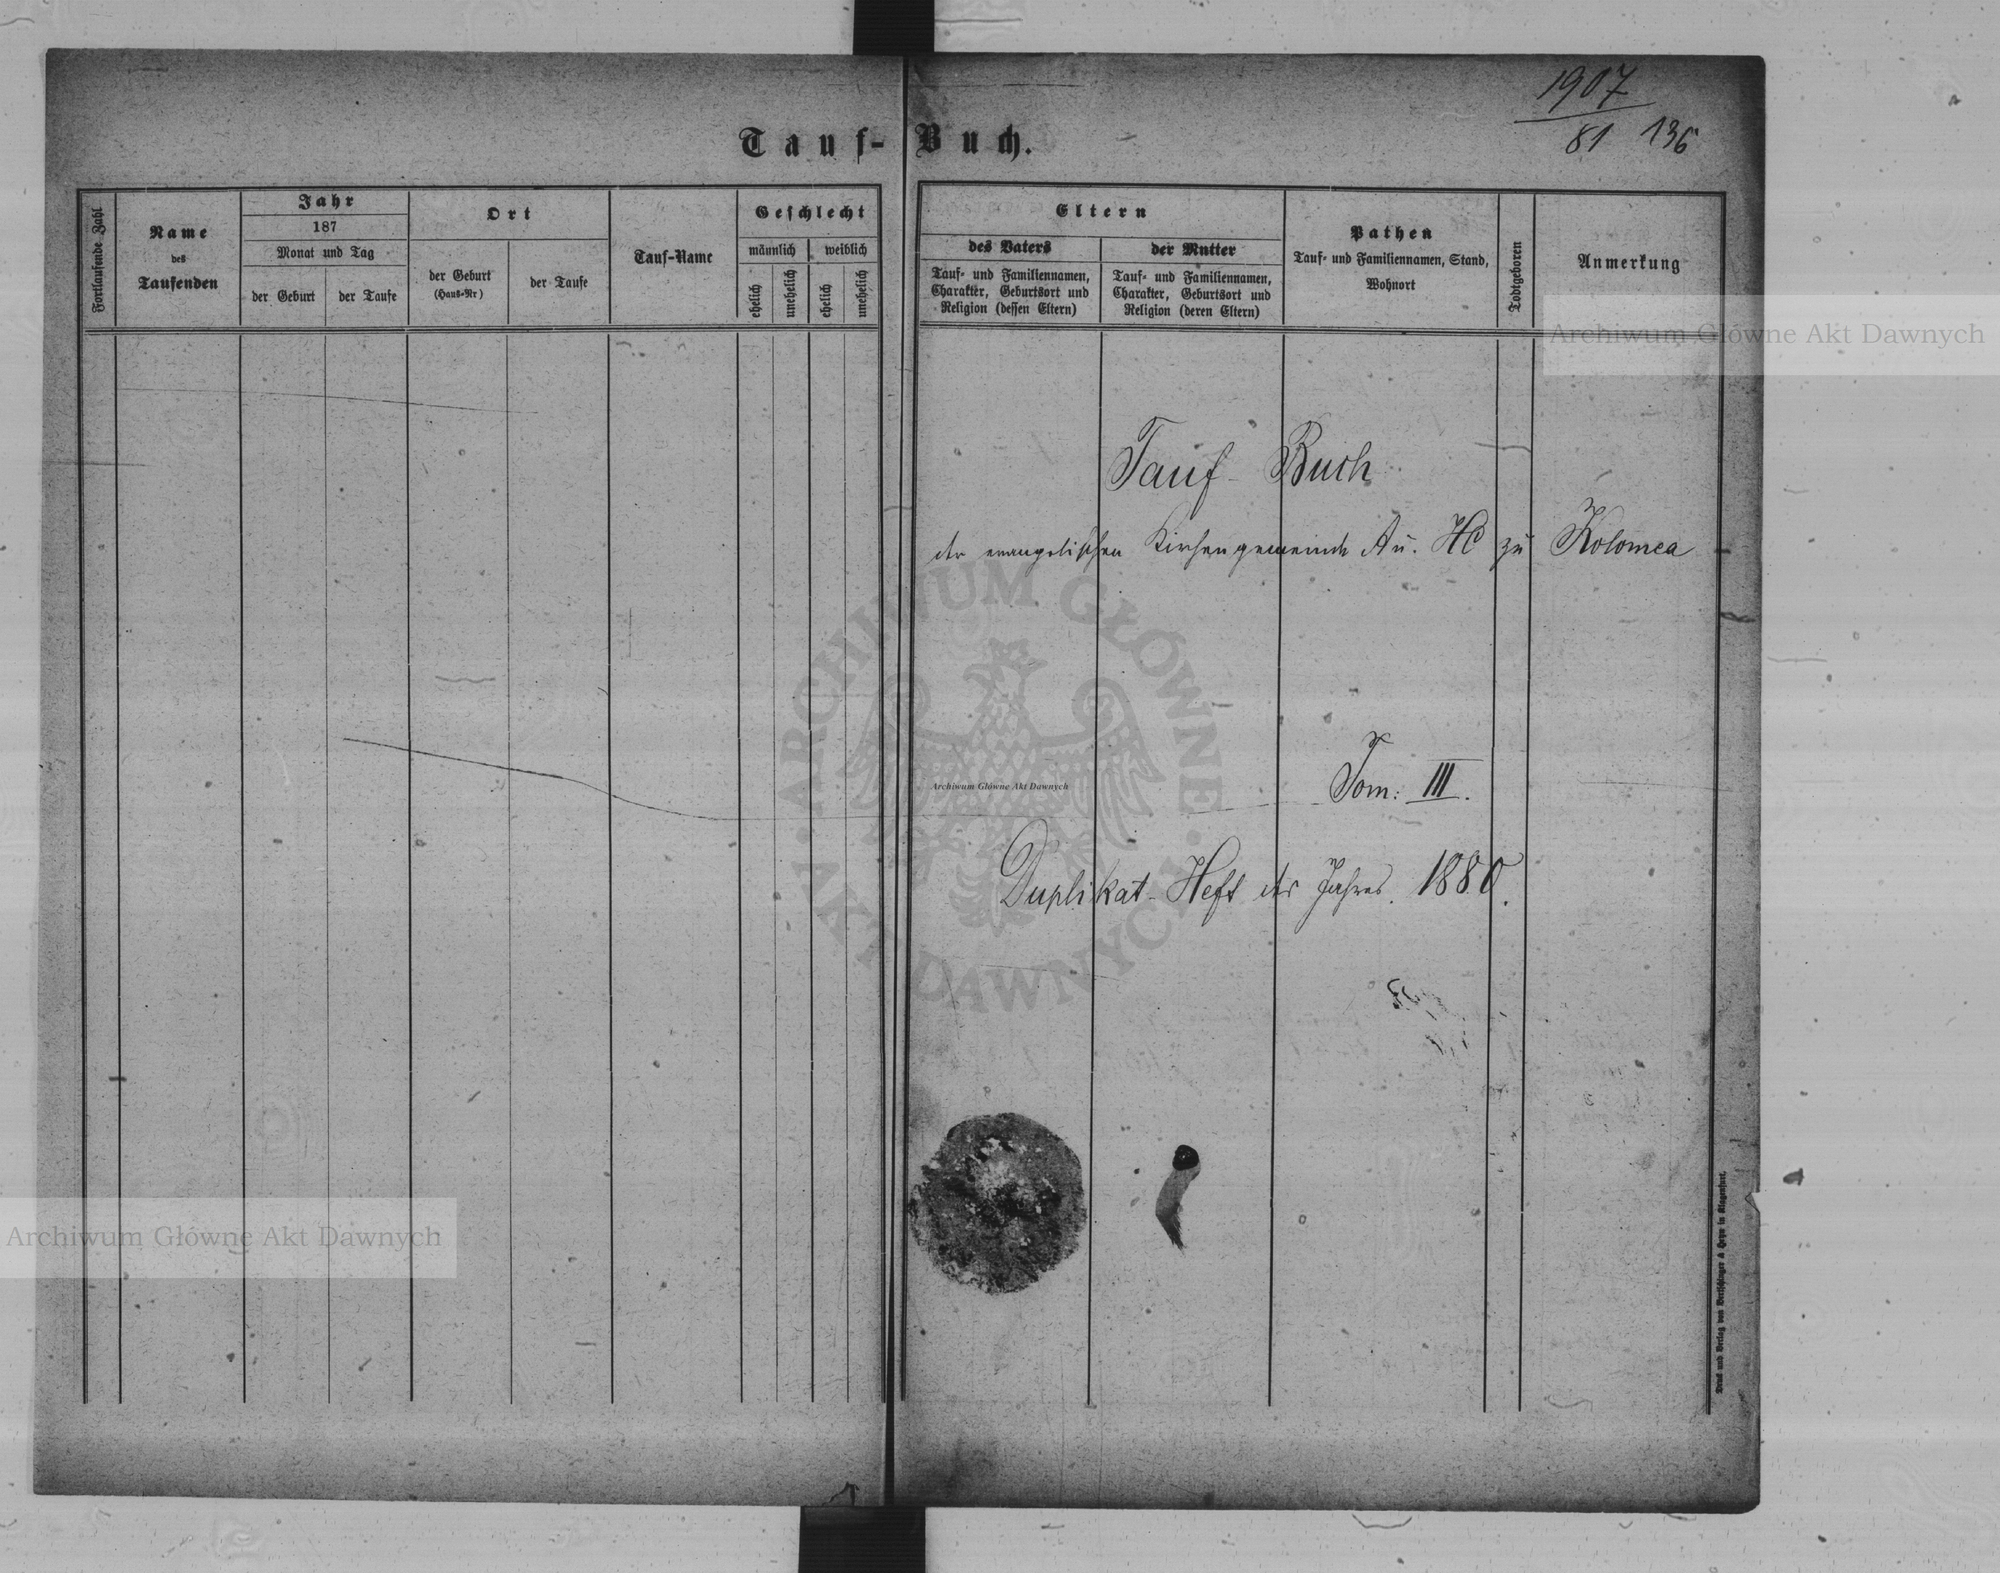 1907
81 136
Tauf-Buch.
Fortlaufende Zahl
Name
des
Taufenden
Jahr
187
Monat und Tag
der Geburt
der Taufe
Ort
der Geburt
(Haus-Nr)
der Taufe
Tauf-Name
Geschlecht
männlich
weiblich
ehelich
unehelich
ehelich
unehelich
Eltern
des Vaters
Tauf- und Familiennamen,
Charakter, Geburtsort und
Religion (dessen Eltern)
der Mutter
Tauf- und Familiennamen,
Charakter, Geburtsort und
Religion (deren Eltern)
Pathen
Tauf- und Familiennamen, Stand,
Wohnort
Todtgeboren
Anmerkung
Archiwum Główne Akt Dawnych
Tauf-Buch
der evangelischen Kirchengemeinde A u. HC zu Kolomea
ARCHIWUM GŁÓWNE
Archiwum Główne Akt Dawnych
Tom: III.
Duplikat-Heft des Jahres 1880.
AKT DAWNYCH
Archiwum Główne Akt Dawnych
Druck und Verlag von Bertschinger & Heyn in Klagenfurt.